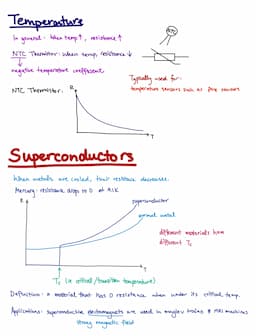 Temperature
In general: When temp↑, resistance↑
NTC Thermistor: When temp, resistance↓
negative temperature coefficient
Typically used for:
temperature sensors such as fire sensors
NTC Thermistor:
R
T
Superconductors
When metals are cooled, their resistance decreases.
Mercury: resistance drops to 0 at 4.1K
R
superconductor
normal metal
different materials have
different Tc
T
Tc (ie critical/transition temperature)
Definition: a material that has 0 resistance when under its critical temp.
Applications: superconductive electromagnets are used in maglev trains & MRI machines
strong magnetic field